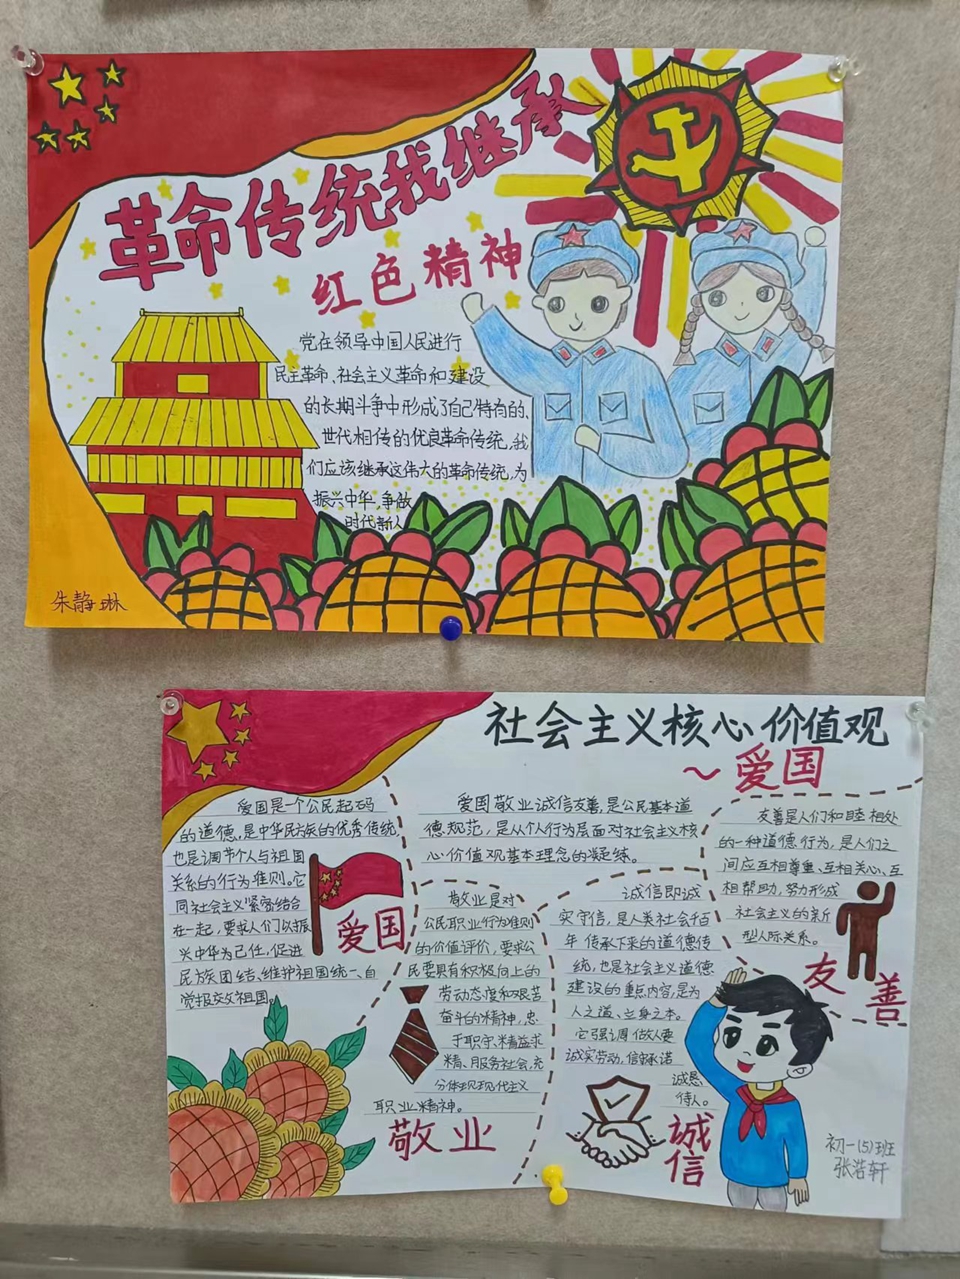 革命传统我继承
红色精神
党在领导中国人民进行
民主革命、社会主义革命和建设
的长期斗争中形成了自己特有的、
世代相传的优良革命传统,我
们应该继承这伟大的革命传统,为
振兴中华,争做
时代新人
朱静琳
社会主义核心价值观
~爱国
爱国是一个公民起码
的道德,是中华民族的优秀传统,
也是调节个人与祖国
关系的行为准则。它
同社会主义紧密结合
在一起,要求人们以振
兴中华为己任,促进
民族团结、维护祖国统一、自
觉报效祖国。
爱国
爱国敬业诚信友善,是公民基本道
德规范,是从个人行为层面对社会主义核
心价值观基本理念的凝练。
敬业是对
公民职业行为准则
的价值评价,要求公
民要具有积极向上的
劳动态度和艰苦
奋斗的精神,忠
于职守,精益求
精、服务社会,充
分体现现代主义
职业精神。
敬业
诚信即诚
实守信,是人类社会千百
年传承下来的道德传
统,也是社会主义道德
建设的重点内容,是为
人之道、立身之本。
它强调做人要
诚实劳动,信守承诺
诚恳
待人。
诚信
友善是人们和睦相处
的一种道德行为,是人们之
间应互相尊重、互相关心、互
相帮助,努力形成
社会主义的新
型人际关系。
友善
初一(5)班
张浩轩